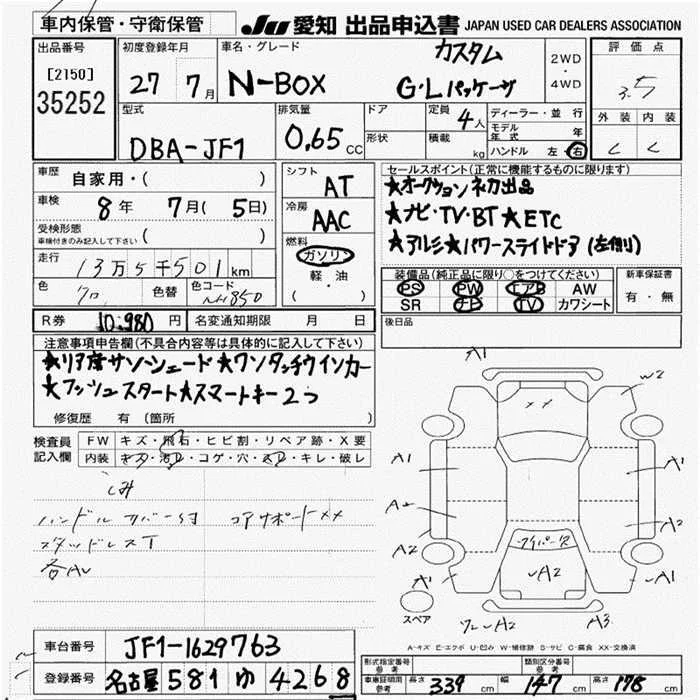 車内保管・守衛保管
JU 愛知 出品申込書 JAPAN USED CAR DEALERS ASSOCIATION
出品番号
[2150]
35252
初度登録年月
27 7月
車名・グレード
N-BOX
カスタム
G・Lパッケージ
2WD
・
4WD
評価点
3.5
外装 内装
く く
型式
DBA-JF1
排気量
0.65 CC
ドア
形状
定員 4人
積載 kg
ディーラー・並行
モデル年式 年
ハンドル 左・右
車歴 自家用・( )
車検 8年 7月( 5日)
受検形態
車検付きのみ記入して下さい ( )
走行 13万5千501km
色 クロ 色替 色コード NH850
シフト AT
冷房 AAC
燃料
ガソリン
軽・油
( )
セールスポイント(正常に機能するものに限ります)
★オークション初出品
★ナビ・TV・BT ★ETC
★アルミ★パワースライドドア(左側)
装備品(純正品に限り○をつけてください)
PS PW エアB AW
SR ナビ TV カワシート
新車保証書
有・無
R券 10,980円 名変通知期限 月 日
後日品
注意事項申告欄(不具合内容等は具体的に記入して下さい)
★リア席サンシェード★ワンタッチウインカー
★プッシュスタート★スマートキー2つ
修復歴 有(箇所 )
検査員記入欄
FW キズ・飛石・ヒビ割・リペア跡・X要
内装 キズ・汚レ・コゲ・穴・スレ・キレ・破レ
シミ
ハンドルカバー付 コアサポートXX
スタッドレスT
各AU
A1
XX
W2
A1
A2
A2
A2
ワイパーX
A2
A1
スペア
A2
A3
A-キズ E-エクボ U-凹み W-補修跡 S-サビ C-腐食 XX-交換済
車台番号 JF1-1629763
登録番号 名古屋 581 ゆ 4268
形式指定番号 参考
類別区分番号 参考
車庫証明用参考 長さ 339cm 幅 147cm 高さ 178cm